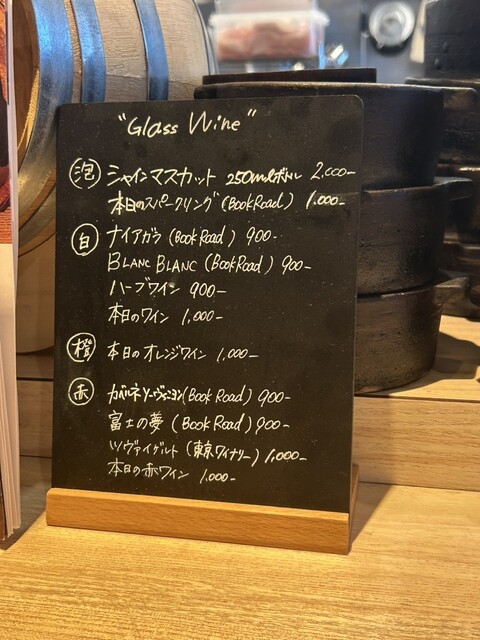 "Glass Wine"
泡 シャインマスカット 250mlボトル 2,000-
本日のスパークリング (Book Road) 1,000-
白 ナイアガラ (Book Road) 900-
BLANC BLANC (Book Road) 900-
ハーブワイン 900-
本日のワイン 1,000-
橙 本日のオレンジワイン 1,000-
赤 カベルネソーヴィニヨン (Book Road) 900-
富士の夢 (Book Road) 900-
ツヴァイゲルト (東京ワイナリー) 1,000-
本日の赤ワイン 1,000-